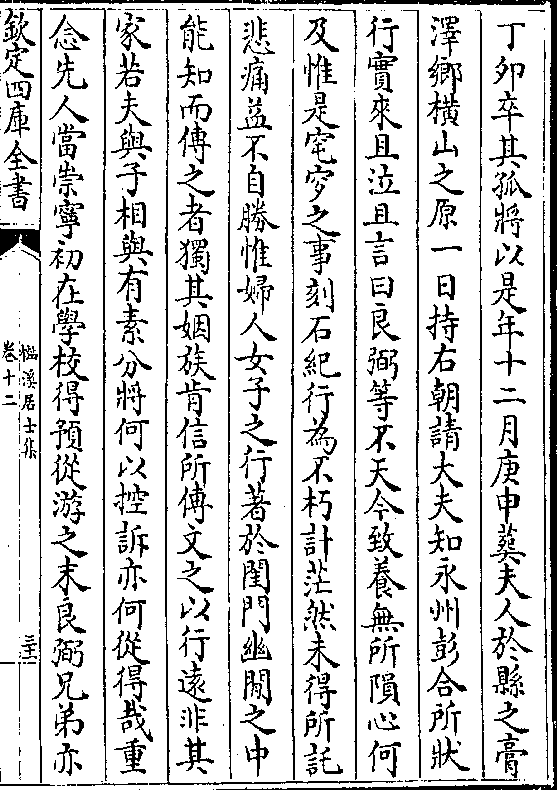 丁卯卒其孤將以是年十二月庚申葬夫人於縣之膏
澤鄉橫山之原一日持右朝請大夫知永州彭合所狀
行實來且泣且言曰良弼等不天今致養無所隕心何
及惟是窀穸之事刻石紀行為不朽計茫然未得所託
悲痛益不自勝惟婦人女子之行著於閨門幽閒之中
能知而傳之者獨其姻族肯信所傳文之以行遠非其
家若夫與子相與有素分將何以控訴亦何從得哉重
念先人當崇寧初在學校得預從游之末良弼兄弟亦
欽定四庫全書
盧溪居士集
卷十二
三十一